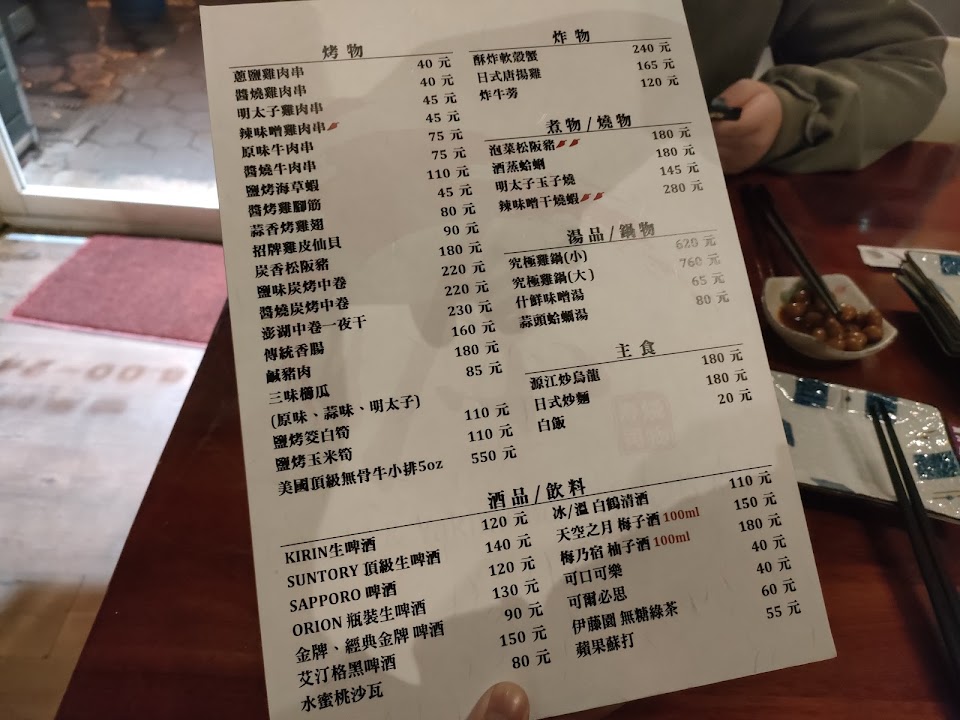 烤物
蔥鹽雞肉串 40 元
醬燒雞肉串 40 元
明太子雞肉串 45 元
辣味噌雞肉串 45 元
原味牛肉串 75 元
醬燒牛肉串 75 元
鹽烤海草蝦 110 元
醬烤雞腳筋 45 元
蒜香烤雞翅 80 元
招牌雞皮仙貝 90 元
炭香松阪豬 180 元
鹽味炭烤中卷 220 元
醬燒炭烤中卷 220 元
澎湖中卷一夜干 230 元
傳統香腸 160 元
鹹豬肉 180 元
三味櫛瓜 85 元
(原味、蒜味、明太子)
鹽烤筊白筍 110 元
鹽烤玉米筍 110 元
美國頂級無骨牛小排5oz 550 元
炸物
酥炸軟殼蟹 240 元
日式唐揚雞 165 元
炸牛蒡 120 元
煮物/燒物
泡菜松阪豬 180 元
酒蒸蛤蜊 180 元
明太子玉子燒 145 元
辣味噌干燒蝦 280 元
湯品/鍋物
究極雞鍋(小) 620 元
究極雞鍋(大) 760 元
什鮮味噌湯 65 元
蒜頭蛤蜊湯 80 元
主食
源江炒烏龍 180 元
日式炒麵 180 元
白飯 20 元
酒品/飲料
KIRIN生啤酒 120 元
SUNTORY 頂級生啤酒 140 元
SAPPORO 啤酒 120 元
ORION 瓶裝生啤酒 130 元
金牌、經典金牌 啤酒 90 元
艾汀格黑啤酒 150 元
水蜜桃沙瓦 80 元
冰/溫 白鶴清酒 110 元
天空之月 梅子酒 100ml 150 元
梅乃宿 柚子酒 100ml 180 元
可口可樂 40 元
可爾必思 40 元
伊藤園 無糖綠茶 60 元
蘋果蘇打 55 元